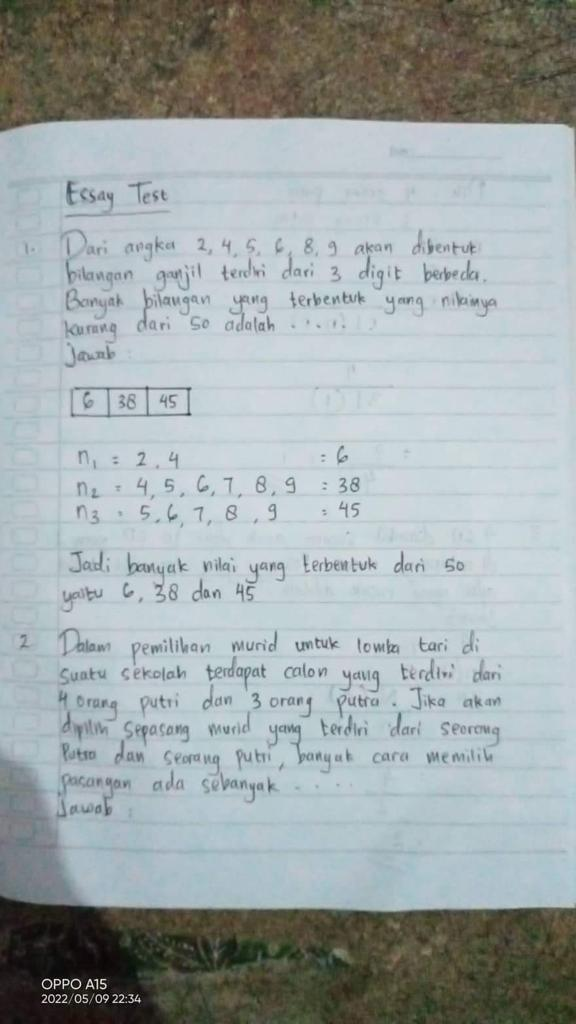 Essay Test
1. Dari angka 2, 4, 5, 6, 8, 9 akan dibentuk
bilangan ganjil terdiri dari 3 digit berbeda.
Banyak bilangan yang terbentuk yang nilainya
kurang dari 50 adalah .....
Jawab :
6 38 45
n1 = 2, 4 : 6
n2 = 4, 5, 6, 7, 8, 9 : 38
n3 = 5, 6, 7, 8, 9 : 45
Jadi banyak nilai yang terbentuk dari 50
yaitu 6, 38 dan 45
2 Dalam pemilihan murid untuk lomba tari di
suatu sekolah terdapat calon yang terdiri dari
4 orang putri dan 3 orang putra. Jika akan
dipilih sepasang murid yang terdiri dari seorang
Putra dan seorang putri, banyak cara memilih
pasangan ada sebanyak ....
Jawab :
OPPO A15
2022/05/09 22:34